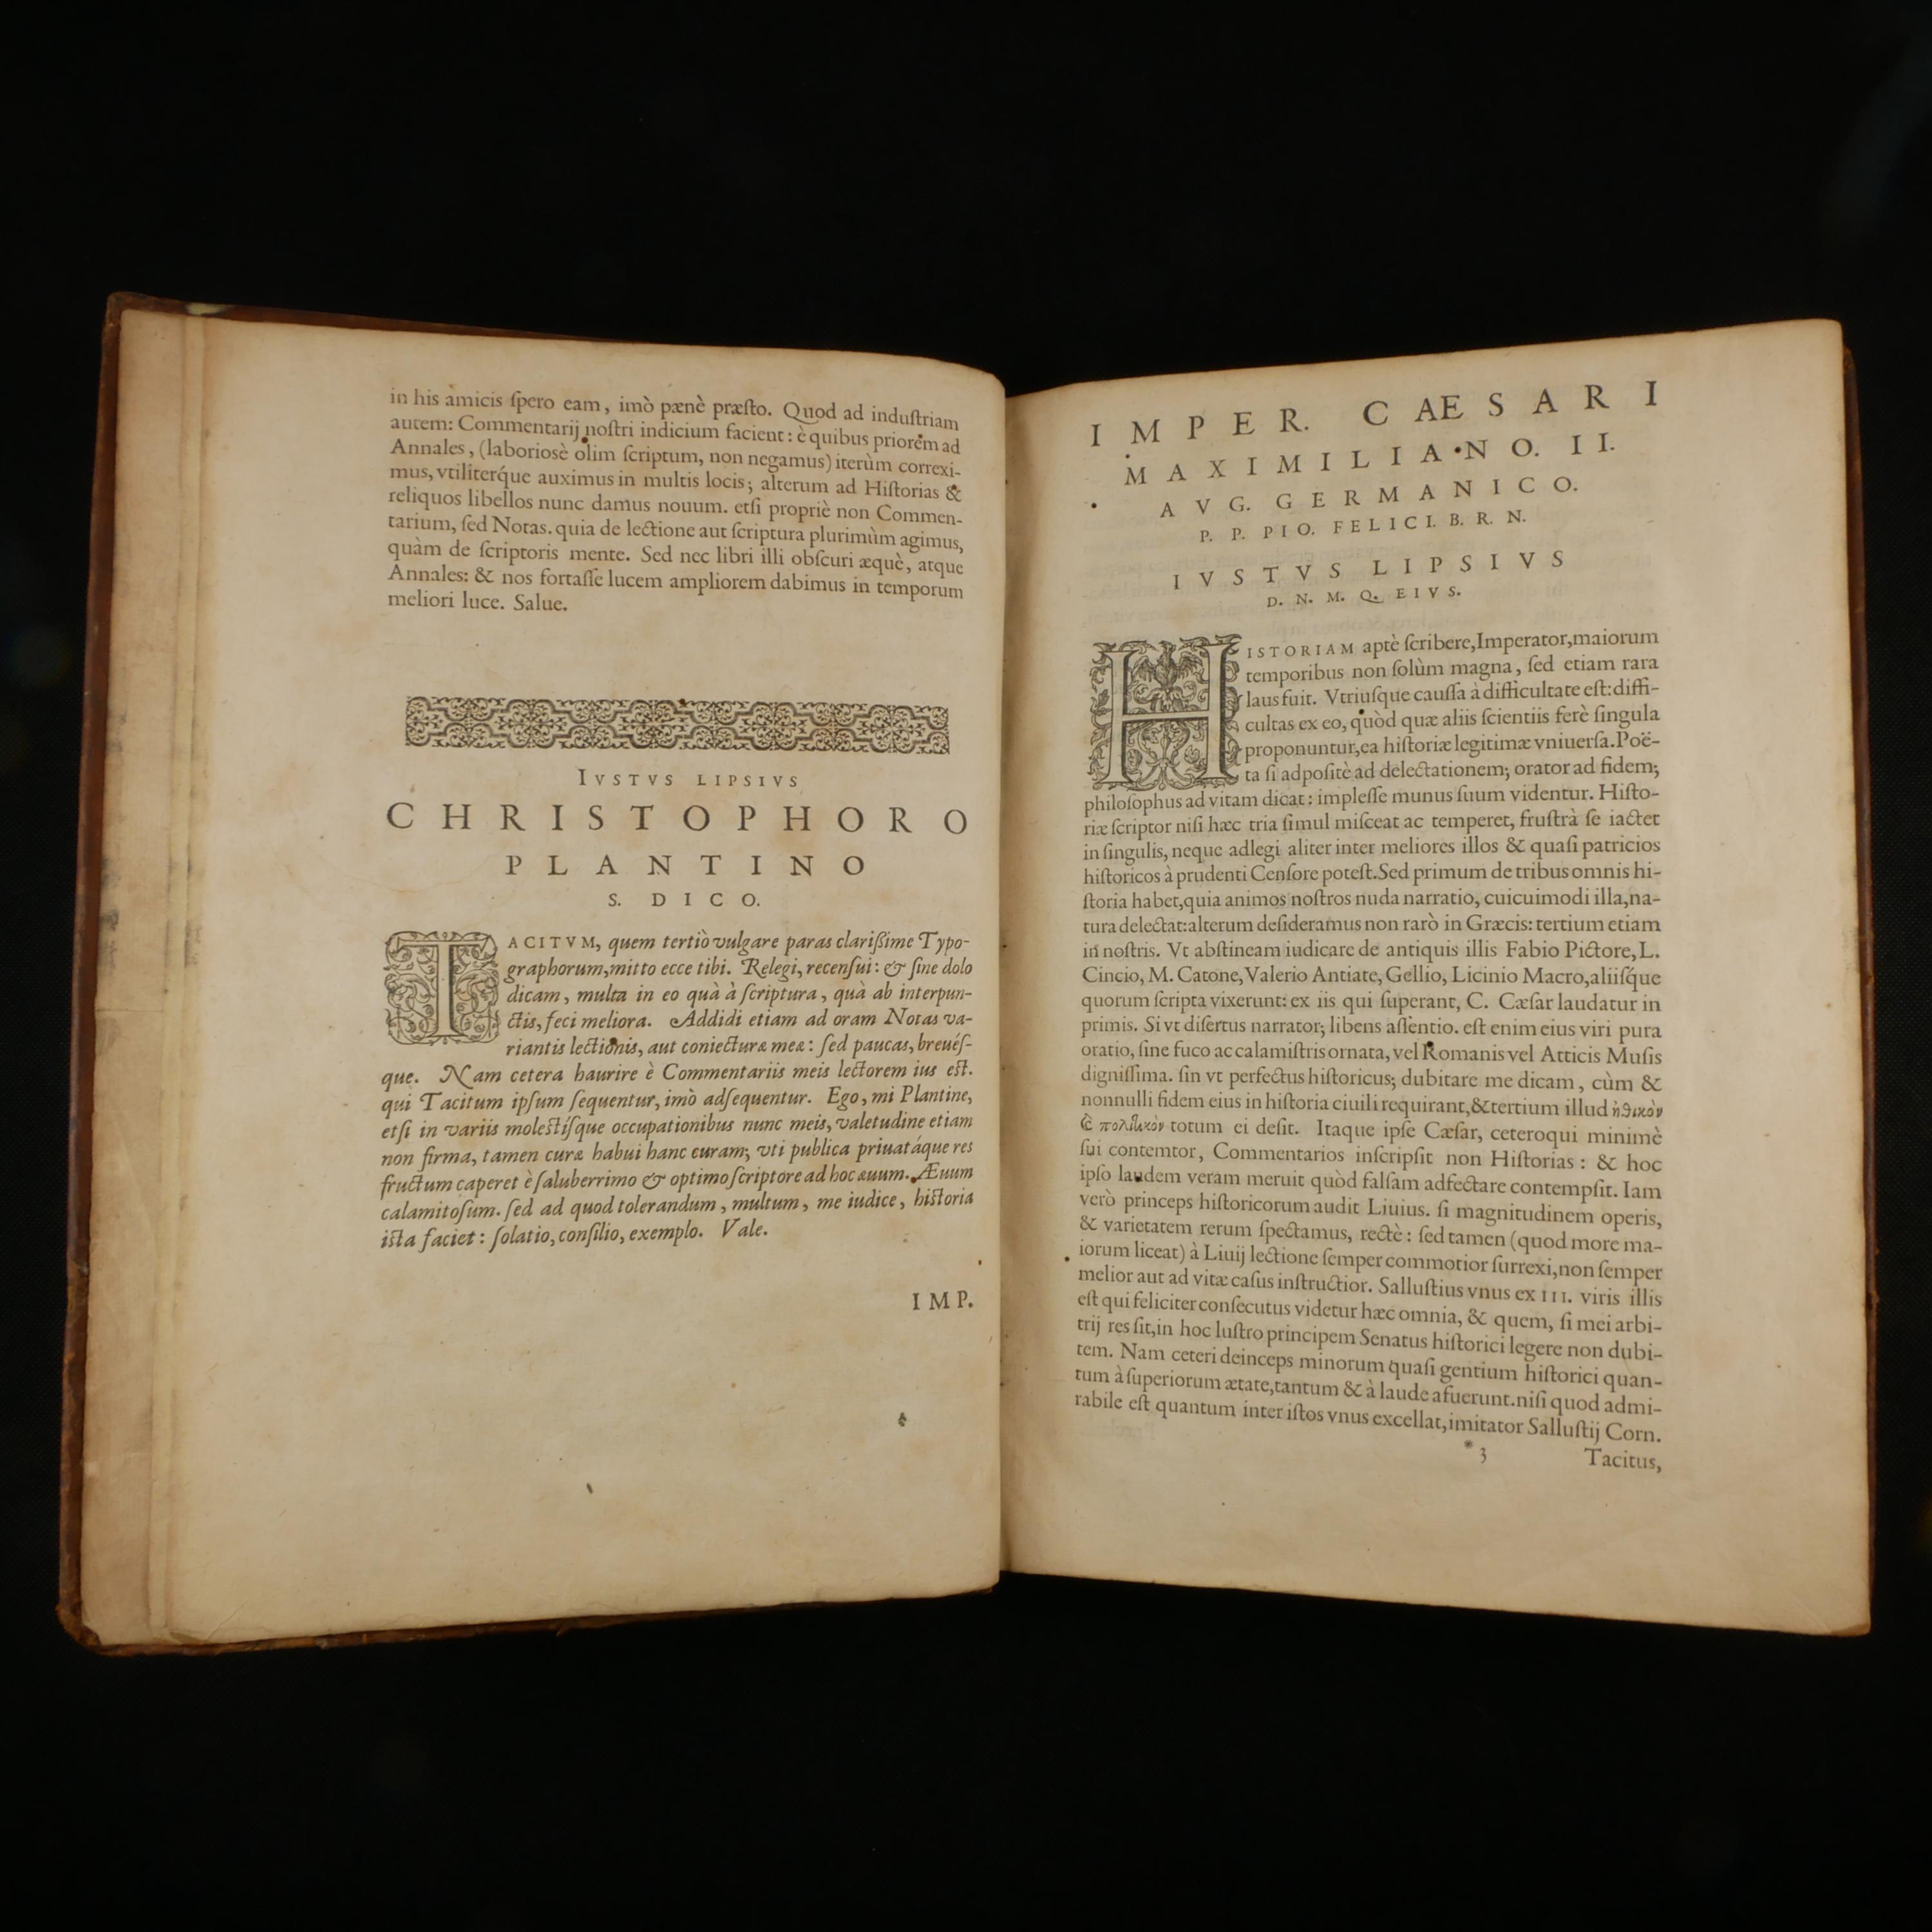 in his amicis ſpero eam, imò pænè præſto. Quod ad induſtriam
autem: Commentarij noſtri indicium facient: è quibus priorem ad
Annales, (laboriosè olim ſcriptum, non negamus) iterùm correxi-
mus, vtiliterq́ue auximus in multis locis; alterum ad Hiſtorias &
reliquos libellos nunc damus nouum. etſi propriè non Commen-
tarium, ſed Notas. quia de lectione aut ſcriptura plurimùm agimus,
quàm de ſcriptoris mente. Sed nec libri illi obſcuri æquè, atque
Annales: & nos fortaſſe lucem ampliorem dabimus in temporum
meliori luce. Salue.
IVSTVS LIPSIVS
CHRISTOPHORO
PLANTINO
S. DICO.
TACITVM, quem tertiò vulgare paras clarißime Typo-
graphorum, mitto ecce tibi. Relegi, recenſui: & ſine dolo
dicam, multa in eo quà à ſcriptura, quà ab interpun-
ctis, feci meliora. Addidi etiam ad oram Notas va-
riantis lectionis, aut coniecturæ meæ: ſed paucas, breuéſ-
que. Nam cetera haurire è Commentariis meis lectorem ius eſt.
qui Tacitum ipſum ſequentur, imò adſequentur. Ego, mi Plantine,
etſi in variis moleſtíſque occupationibus nunc meis, valetudine etiam
non firma, tamen curæ habui hanc curam; vti publica priuatáque res
fructum caperet è ſaluberrimo & optimo ſcriptore ad hoc æuum. Æuum
calamitoſum. ſed ad quod tolerandum, multum, me iudice, hiſtoria
iſta faciet: ſolatio, conſilio, exemplo. Vale.
IMP.
IMPER. CAESARI
MAXIMILIANO. II.
AVG. GERMANICO.
P. P. PIO. FELICI. B. R. N.
IVSTVS LIPSIVS
D. N. M. Q. EIVS.
HISTORIAM aptè ſcribere, Imperator, maiorum
temporibus non ſolùm magna, ſed etiam rara
laus fuit. Vtriuſque cauſſa à difficultate eſt: diffi-
cultas ex eo, quòd quæ aliis ſcientiis ferè ſingula
proponuntur, ea hiſtoriæ legitimæ vniuerſa. Poë-
ta ſi adpoſitè ad delectationem; orator ad fidem;
philoſophus ad vitam dicat: impleſſe munus ſuum videntur. Hiſto-
riæ ſcriptor niſi hæc tria ſimul miſceat ac temperet, fruſtrà ſe iactet
in ſingulis, neque adlegi aliter inter meliores illos & quaſi patricios
hiſtoricos à prudenti Cenſore poteſt. Sed primum de tribus omnis hi-
ſtoria habet, quia animos noſtros nuda narratio, cuicuimodi illa, na-
tura delectat: alterum deſideramus non rarò in Græcis: tertium etiam
in noſtris. Vt abſtineam iudicare de antiquis illis Fabio Pictore, L.
Cincio, M. Catone, Valerio Antiate, Gellio, Licinio Macro, aliiſq́ue
quorum ſcripta vixerunt: ex iis qui ſuperant, C. Cæſar laudatur in
primis. Si vt diſertus narrator; libens aſſentio. eſt enim eius viri pura
oratio, ſine fuco ac calamiſtris ornata, vel Romanis vel Atticis Muſis
digniſſima. ſin vt perfectus hiſtoricus; dubitare me dicam, cùm &
nonnulli fidem eius in hiſtoria ciuili requirant, & tertium illud ἠθικὸν
ϗ̀ πολιτικὸν totum ei deſit. Itaque ipſe Cæſar, ceteroqui minimè
ſui contemtor, Commentarios inſcripſit non Hiſtorias: & hoc
ipſo laudem veram meruit quòd falſam adfectare contempſit. Iam
verò princeps hiſtoricorum audit Liuius. ſi magnitudinem operis,
& varietatem rerum ſpectamus, rectè: ſed tamen (quod more ma-
iorum liceat) à Liuij lectione ſemper commotior ſurrexi, non ſemper
melior aut ad vitæ caſus inſtructior. Salluſtius vnus ex III. viris illis
eſt qui feliciter conſecutus videtur hæc omnia, & quem, ſi mei arbi-
trij res ſit, in hoc luſtro principem Senatus hiſtorici legere non dubi-
tem. Nam ceteri deinceps minorum quaſi gentium hiſtorici quan-
tum à ſuperiorum ætate, tantum & à laude afuerunt. niſi quod admi-
rabile eſt quantum inter iſtos vnus excellat, imitator Salluſtij Corn.
* 3 Tacitus,